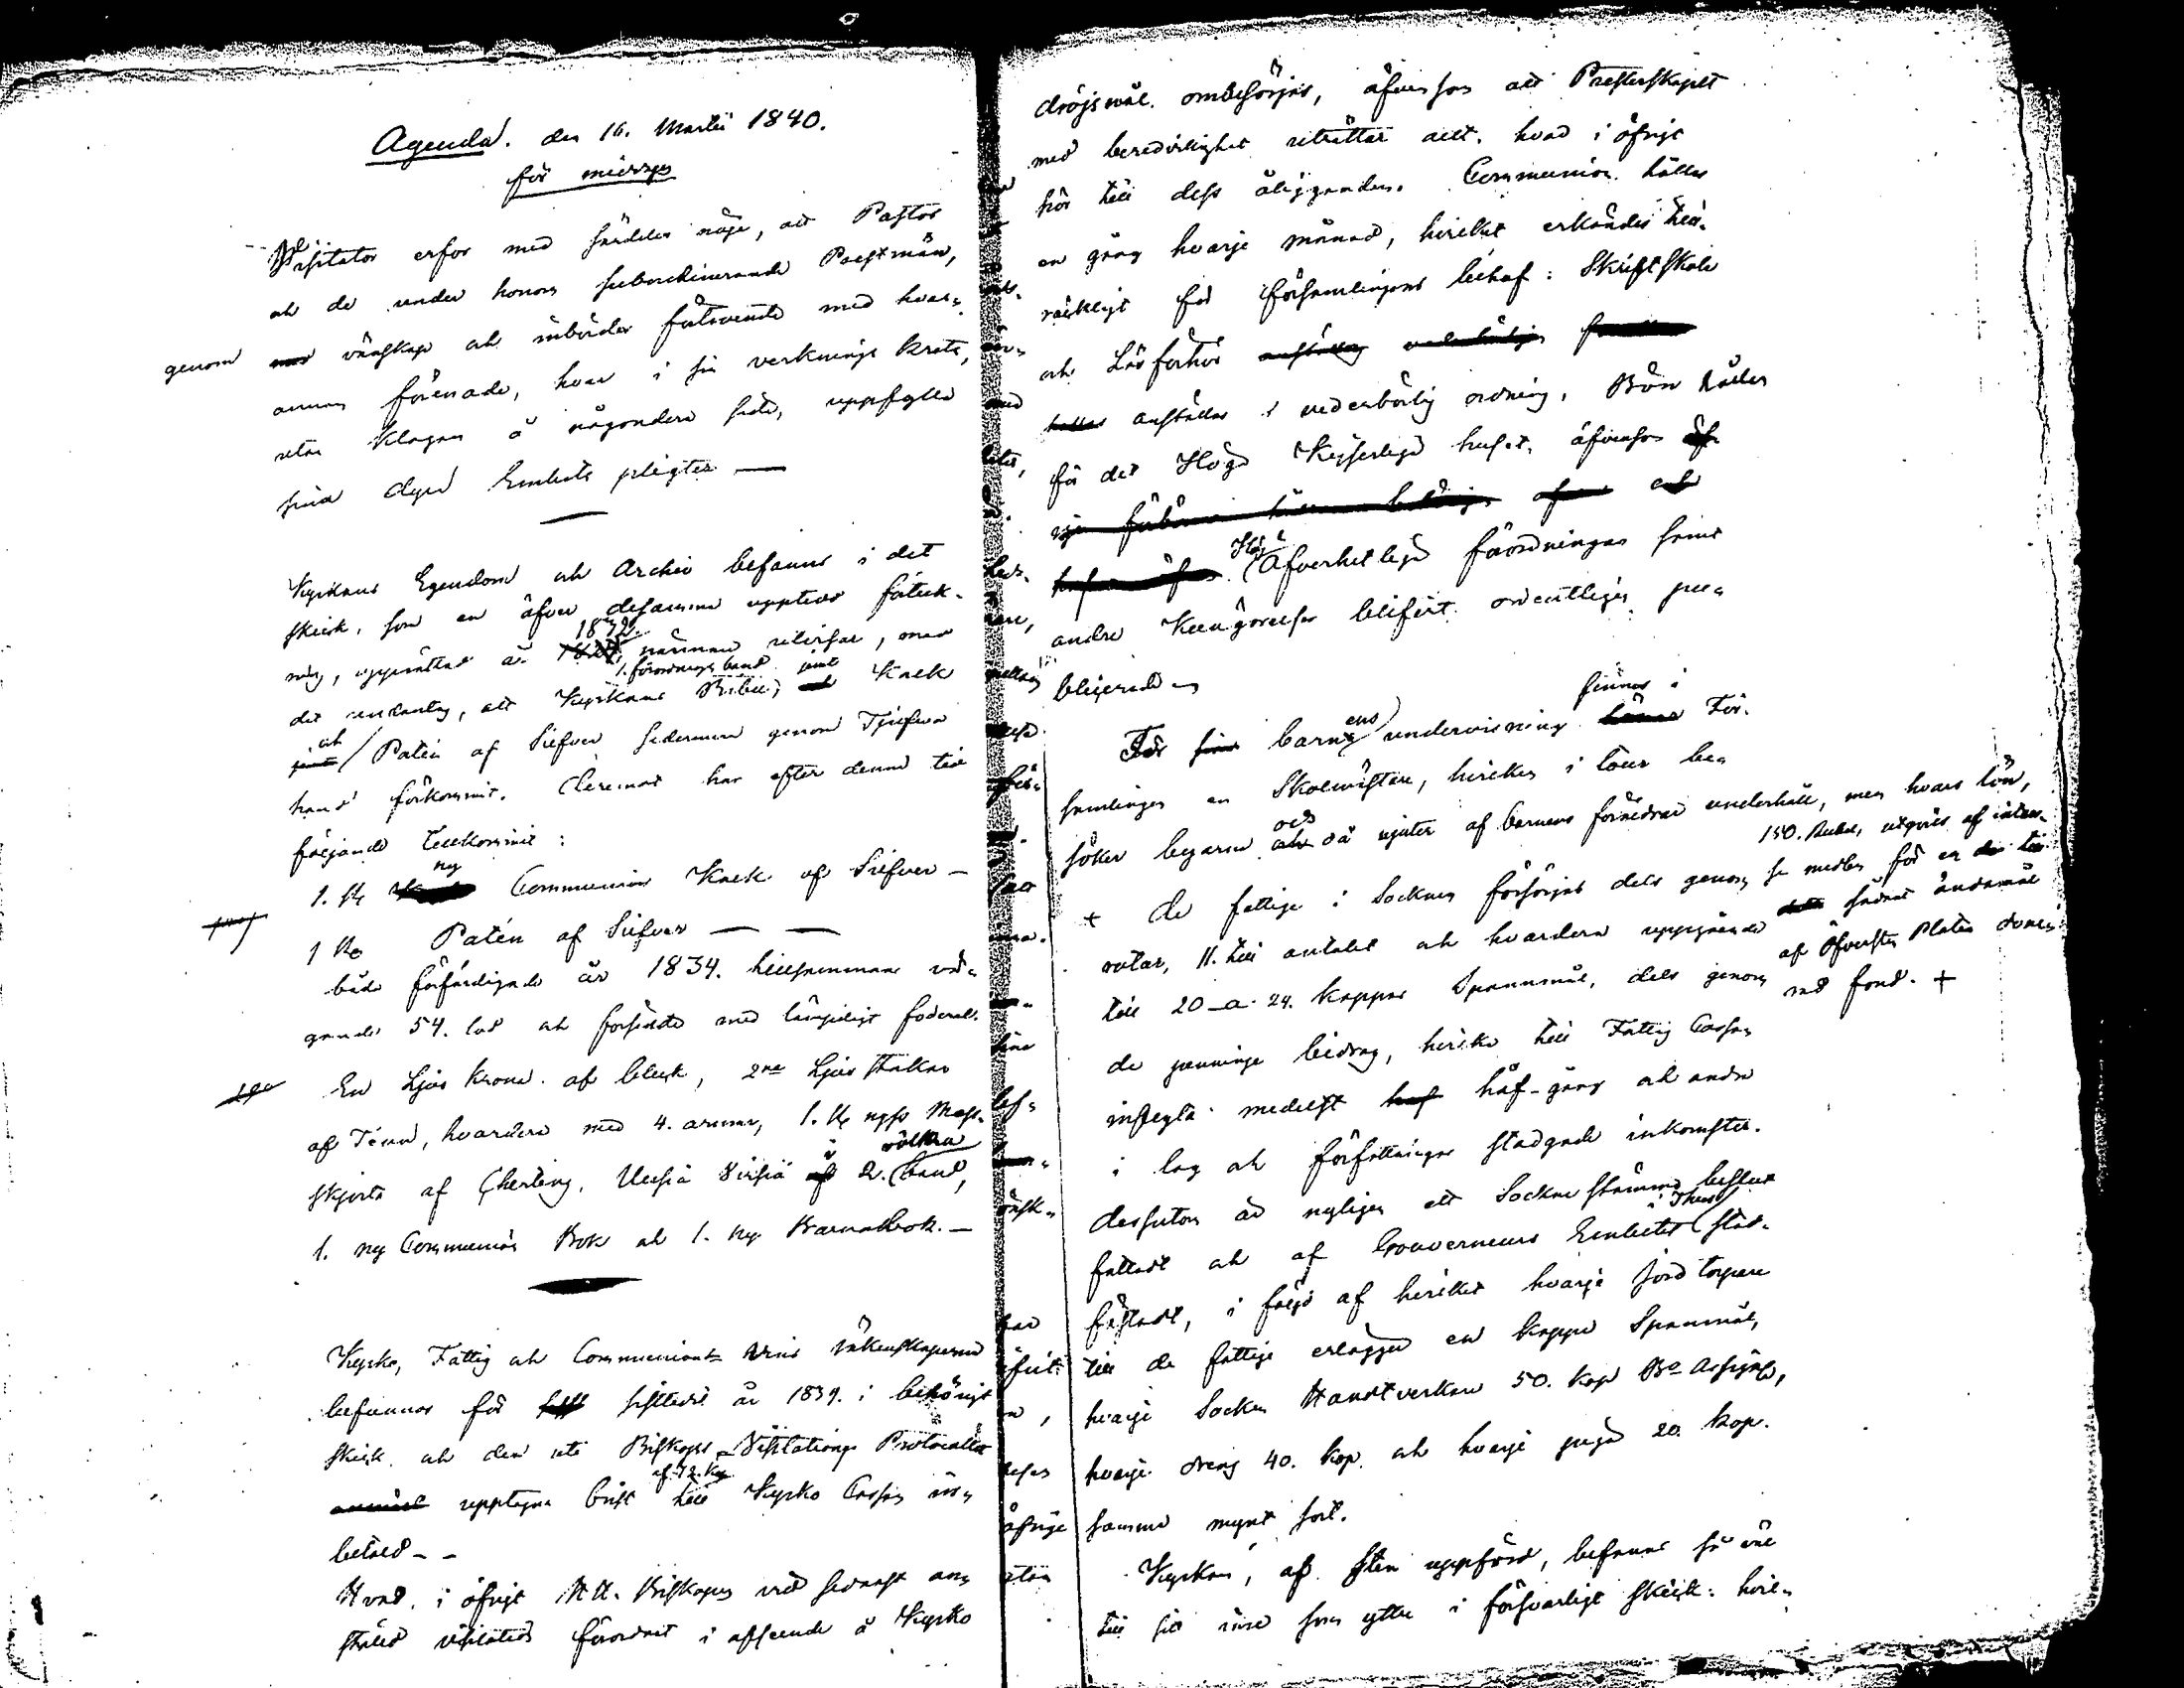 Agenda. den 16. Martii 1840.
för
Visitator erfor med särdeles nöje, att Pastor
och de under honom subordinerande Prestmän,
genom vänskap och inbördes förtroende med hvar-
annan förenade, hvar i sin verknings krets,
utan klagan å någondera sida, uppfylla
sina dyra Embets pligter —
Kyrkans Egendom och Archiv befanns i det
skick, som en öfver desamma upptagen förteck-
ning, upprättad år 1832 närmare utvisar, med
1. förordnings band samt
det undantag, att Kyrkans Bibel, Kalk
och Patén af Silfver sedermera genom Tjufva
hand förkommit. Deremot har efter denna tid
följande tillkommit:
1. st. ny Communion Kalk af Silfver —
1 st. Patén af Silfver — —
både förfärdigade år 1834. tillsammans vä-
gande 54. lod och försedde med lämpeligt foderal.
En Ljus Krona af bleck, 2ne Ljus stakar
af Tenn, hvardera med 4. armar, 1. st. nytt Mess-
skjorta af Cherting, Uusia Virsiä i 2. särskilda band,
1. ny Communion Bok och 1. ny Barnabok. —
Kyrko, Fattig och Communion Vins räkenskaperna
befunnos för sistledit år 1839. i behörigt
skick och den uti Biskops Visitations Protocollet
upptagna brist af 72. Kop till Kyrko Cassan är
betald - -
Hvad i öfrigt H. H. Biskopen vid senast an-
ställd visitation förordnat i afseende å Kyrko
dröjsmål ombesörjes, äfvensom att Presterskapet
med beredvilighet uträttar allt, hvad i öfrigt
hör till dess åligganden. Communion hålles
en gång hvarje månad, hvilket erkändes till-
räckligt för församlingens behof: Skriftskola
och Läsförhör
anställas i vederbörlig ordning, Bön hålles
för det Höga Kejserliga huset, äfvensom
Hög Öfverhetliga förordningar samt
andra Kungörelser blifvit ordentligen pu-
blicerade
För barnens undervisning finnes i För-
samlingen en Skolmästare, hvilken i tour be-
söker byarne och då njuter af barnens föräldrar underhåll, men hvars lön,
150. Rubel, utgöres af inten-
+ De fattige i Socknen försörjas dels genom se medlen för en till
rotar, 11. till antalet och hvardera uppgående sådant ändamål
till 20 a 24. Kappar Spannmål, dels genom af Öfversten Platin done-
rad fond. +
de penninge bidrag, hvilka till Fattig Cassan
inflyta medelst håf-gång och andra
i lag och författningar stadgade inkomster.
Dessutom är nyligen ett Sockne stämmo beslut
fattadt och af Gouverneurs Embetet i Thus stad-
fästadt, i följd af hvilket hvarje jordtorpare
till de fattige erlägger en kappe Spannmål,
hvarje Socken Handtverkare 50. kop Bo Assign.,
hvarje dreng 40. kop. och hvarje piga 20. kop.
samma mynt sort.
Kyrkan, af sten uppförd, befanns så väl
till sitt inre som yttre i försvarligt skick: hvil-